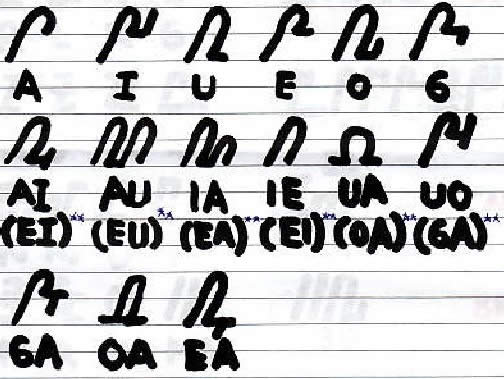 A I U E O 6
AI AU IA IE UA UO
(EI)** (EU)** (EA)** (EI)** (OA)** (6A)**
6A OA EA